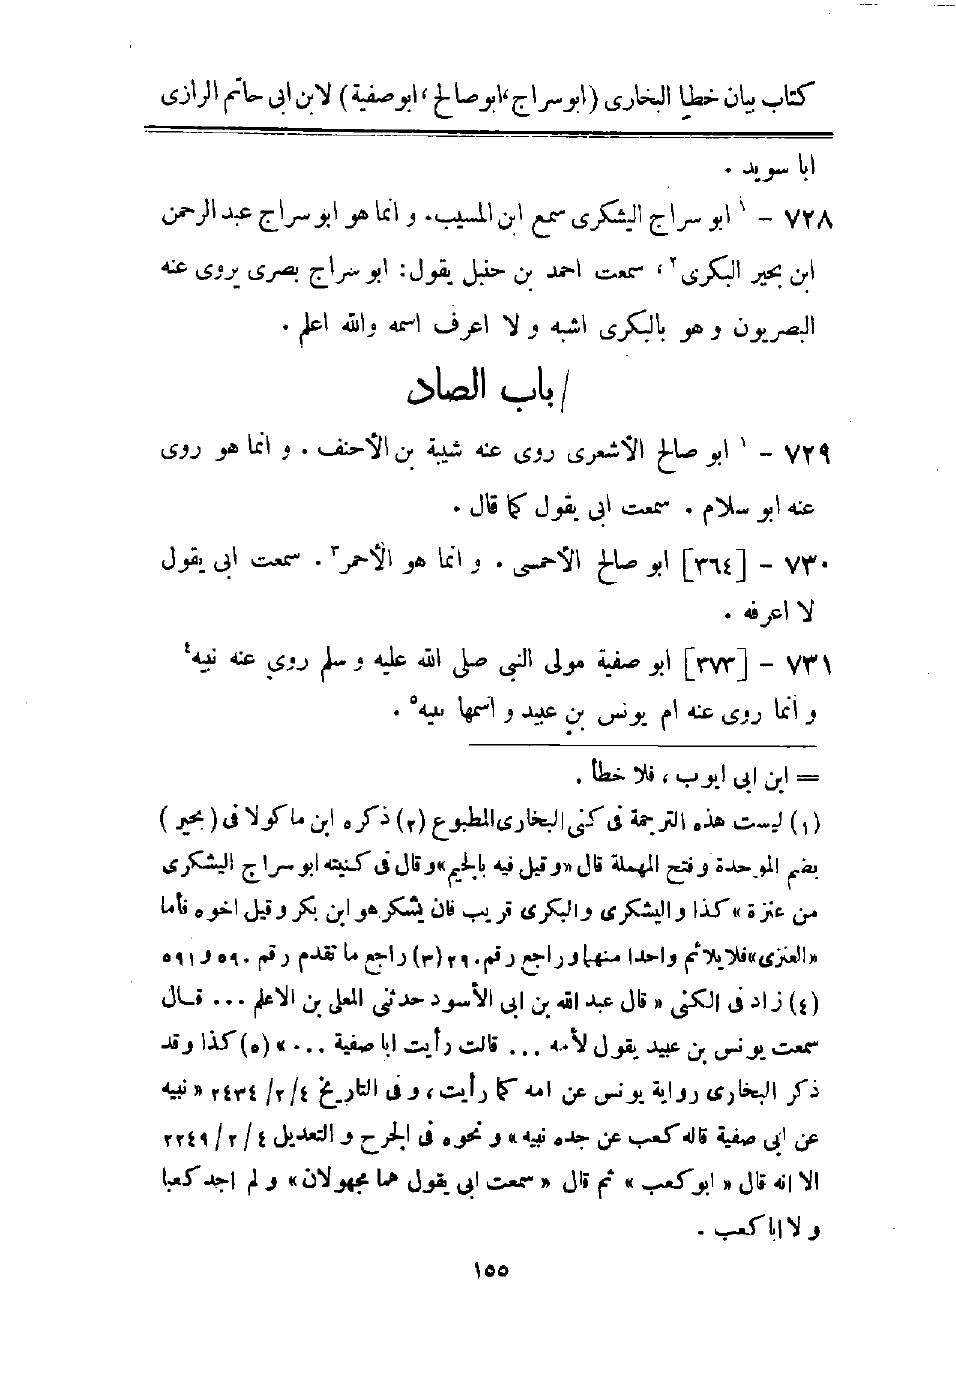 كتاب بيان خطإ البخارى (ابو سراج، ابو صالح، ابو صفية) لابن ابى حاتم الرازى
ابا سويد .
٧٢٨ - ١ ابو سراج اليشكرى سمع ابن المسيب. و انما هو ابو سراج عبد الرحمن
ابن بحير البكرى٢، سمعت احمد بن حنبل يقول: ابو سراج بصرى يروى عنه
البصريون و هو بالبكرى اشبه و لا اعرف اسمه والله اعلم .
/باب الصاد
٧٢٩ - ١ ابو صالح الأشعرى روى عنه شيبة بن الأحنف . و انما هو روى
عنه ابو سلام . سمعت ابى يقول كما قال .
٧٣٠ - [٣٦٤] ابو صالح الأحمسى . و انما هو الأحمر٣ . سمعت ابى يقول
لا اعرفه .
٧٣١ - [٣٧٣] ابو صفية مولى النبى صلى الله عليه و سلم روى عنه نبيه٤
و انما روى عنه ام يونس بن عبيد و اسمها نبيه٥ .
= ابن ابى ايوب ، فلا خطأ .
(١) ليست هذه الترجمة فى كنى البخارى المطبوع (٢) ذكره ابن ماكولا فى (بحير)
بضم الموحدة و فتح المهملة قال «وقيل فيه بالجيم» وقال فى كنيته ابو سراج اليشكرى
من عنزة » كذا و اليشكرى و البكرى قريب فان يشكر هو ابن بكر و قيل اخوه فأما
«العنزى» فلا يلائم واحدا منهما وراجع رقم ٢٩٠ (٣) راجع ما تقدم رقم ٥٩٠ و ٥٩١
(٤) زاد فى الكنى « قال عبد الله بن ابى الأسود حدثنى المعلى بن الاعلم ... قال
سمعت يونس بن عبيد يقول لأمه ... قالت رأيت ابا صفية ... » (٥) كذا وقد
ذكر البخارى رواية يونس عن امه كما رأيت ، و فى التاريخ ٤/ ٢/ ٢٤٣٤ « نبيه
عن ابى صفية قاله كعب عن جده نبيه » و نحوه فى الجرح و التعديل ٤/ ٢/ ٢٢٤٩
الا انه قال « ابو كعب » ثم قال « سمعت ابى يقول هما مجهولان » و لم اجد كعبا
و لا ابا كعب .
١٥٥